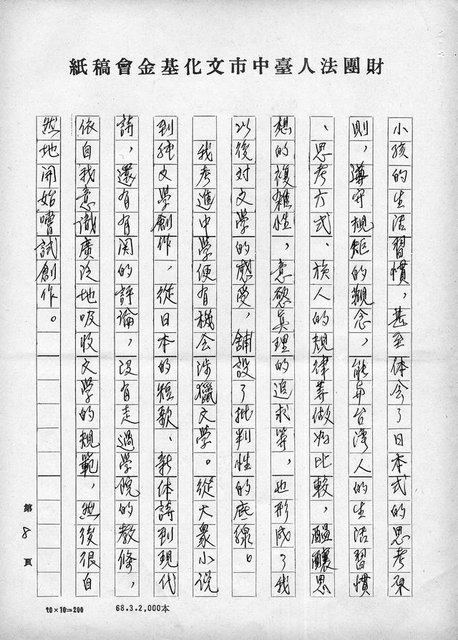 財團法人臺中市文化基金會稿紙
小孩的生活習慣，甚至体会了日本式的思考原
則，遵守規矩的觀念，能與台灣人的生活習慣
、思考方式、族人的規律等做好比較，醞釀思
想的複雜性，意慾真理的追求等，也形成了我
以後对文學的感受，舖設了批判性的底線。
我考進中學便有機会涉獵文學。從大眾小説
到純文學創作，從日本的短歌、新体詩到現代
詩，還有有関的評論，沒有走過學院的教條，
依自我意識廣泛地吸收文學的規範，然後很自
然地開始嘗試創作。
第8頁
20×10=200
68.3.2,000本